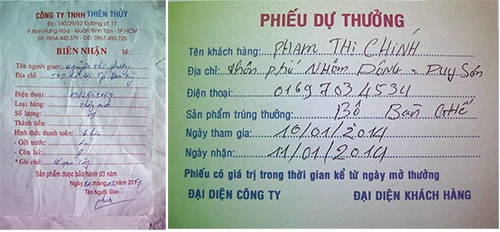 CÔNG TY TNHH THIÊN THỦY
P.Bình Hưng Hòa - Quận Bình Tân - TP.HCM
ĐT: 0654.440.379 - DĐ: 0967.490.725
BIÊN NHẬN
Tên người giao:
Địa chỉ:
Điện thoại:
Loại hàng:
Số lượng:
Thành tiền:
Hình thức thanh toán:
- Gửi trước:
- Còn lại:
* Ghi chú:
Sản phẩm được bảo hành 03 năm
Ngày tháng năm
Tên Người Giao
PHIẾU DỰ THƯỞNG
Tên khách hàng: PHAM THI CHÍNH
Địa chỉ: thôn phú NHOM DÔNG - DUY SƠN
Điện thoại: 01697034534
Sản phẩm trúng thưởng: BÔ BAN GHẾ
Ngày tham gia: 10/01/2014
Ngày nhận: 11/01/2014
Phiếu có giá trị trong thời gian kể từ ngày mở thưởng
ĐẠI DIỆN CÔNG TY ĐẠI DIỆN KHÁCH HÀNG